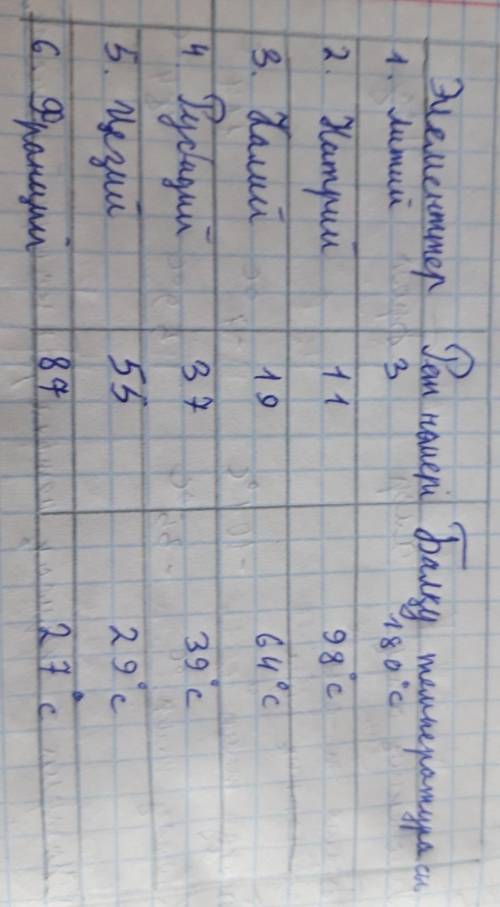 Элементтер Рет нөмері Балқу температурасы
1. Литий 3 180°с
2. Натрий 11 98°с
3. Калий 19 64°с
4. Рубидий 37 39°с
5. Цезий 55 29°с
6. Франций 87 27°с